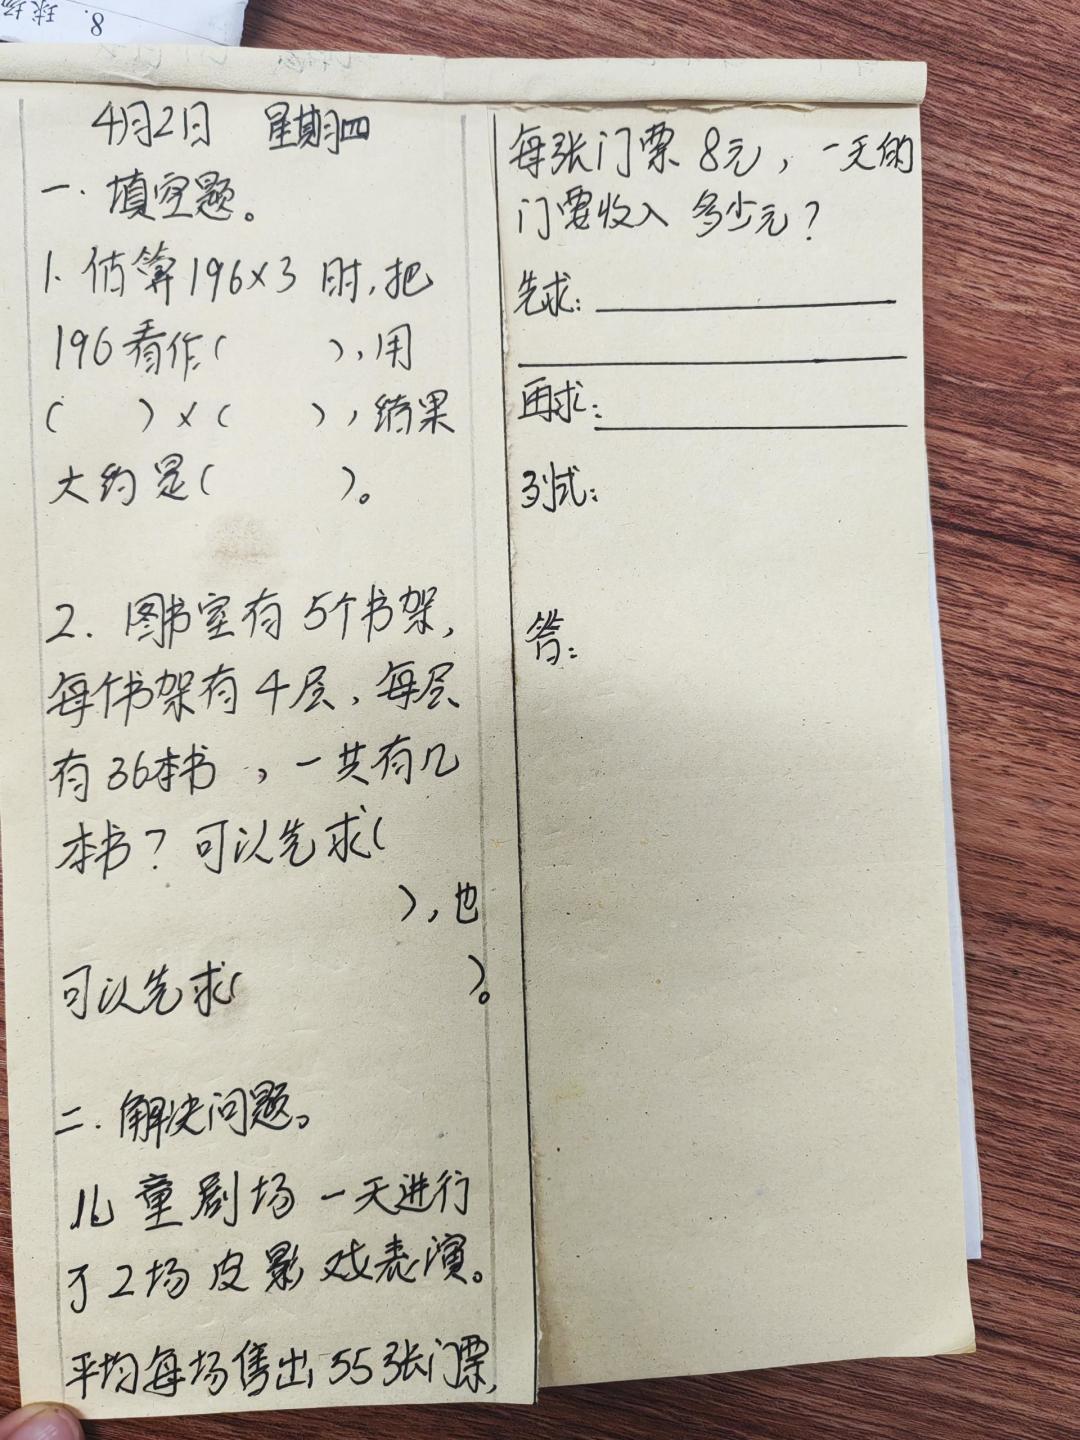 8.
球场
4月2日 星期四
一.填空题。
1.估算196×3时,把
196看作( ),用
( )×( ),结果
大约是( )。
2.图书室有5个书架,
每个书架有4层,每层
有36本书,一共有几
本书?可以先求(
),也
可以先求( )。
二.解决问题。
儿童剧场一天进行
了2场皮影戏表演。
平均每场售出55张门票,
每张门票8元,一天的
门票收入多少元?
先求:
再求:
列式:
答: